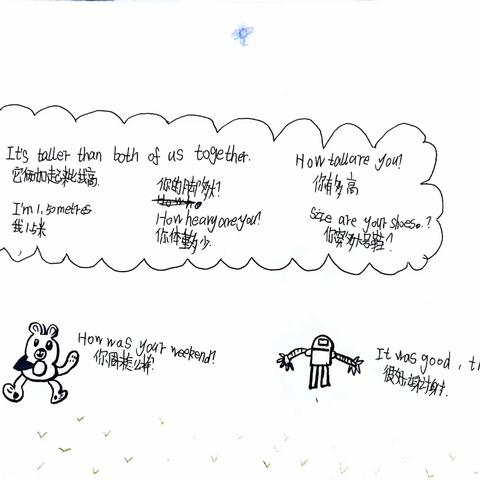 It's taller than both of us together.
它俩加起来比我高.
I'm 1.50 metres
我1.5米
你的脚多大?
How heavy are you?
你体重多少.
How tall are you?
你有多高
Size are your shoes.?
你穿多大号鞋?
How was your weekend?
你周末怎么样?
It was good, th
很好,谢谢.